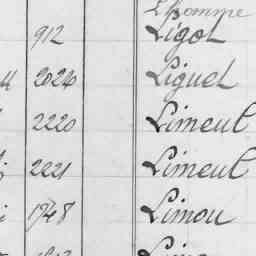 Lhomme
912 Ligot
2024 Liguet
2220 Limeul
2221 Limeul
1748 Limou